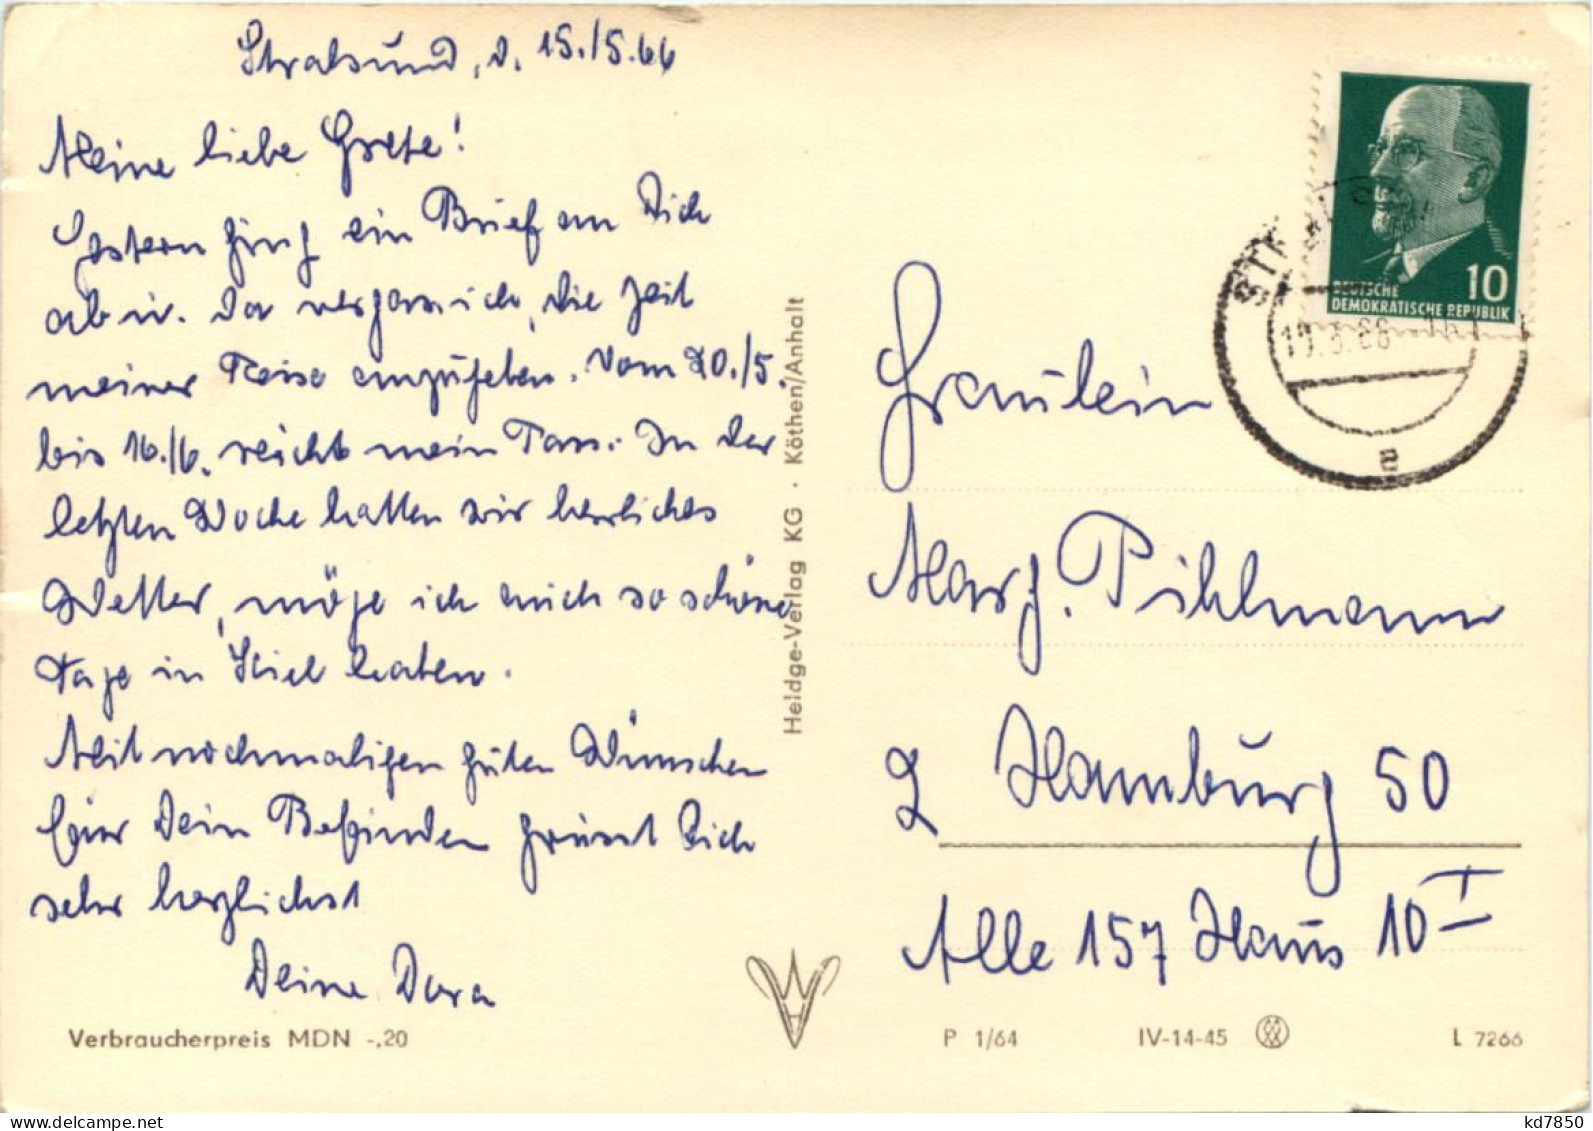 Stralsund, d. 15./5.66
Meine liebe Grete!
Gestern ging ein Brief an Dich
ab u. da vergass ich, die Zeit
meiner Reise anzugeben. Vom 20./5.
bis 16./6. reicht mein Pass. In der
letzten Woche hatten wir herrliches
Wetter, möge ich auch so schöne
Tage in Kiel haben.
Mit nochmaligen guten Wünschen
für Dein Befinden grüsst Dich
sehr herzlichst
Deine Dora
Verbraucherpreis MDN -,20
Heldge-Verlag KG · Köthen/Anhalt
10
DEUTSCHE
DEMOKRATISCHE REPUBLIK
Fräulein
Marg. Pihlmann
2 Hamburg 50
Alle 157 Haus 10 I
P 1/64 IV-14-45 L 7266
kd7850